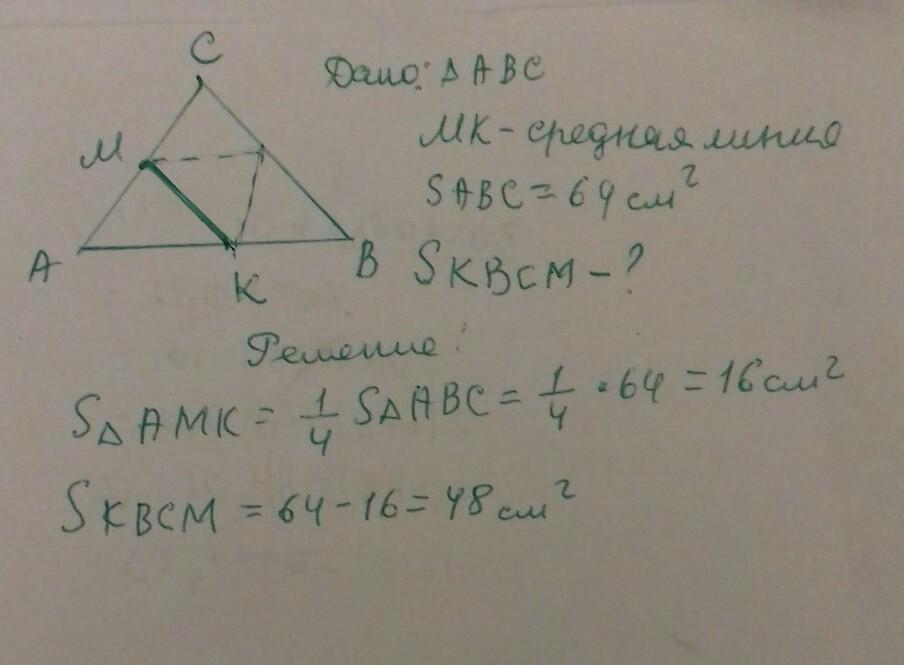 C
Дано: Δ ABC
M
MK - средная линия
SABC = 64 см²
A
K
B
SKBCM - ?
Решение:
SΔAMK = 1/4 SΔABC = 1/4 · 64 = 16 см²
SKBCM = 64 - 16 = 48 см²